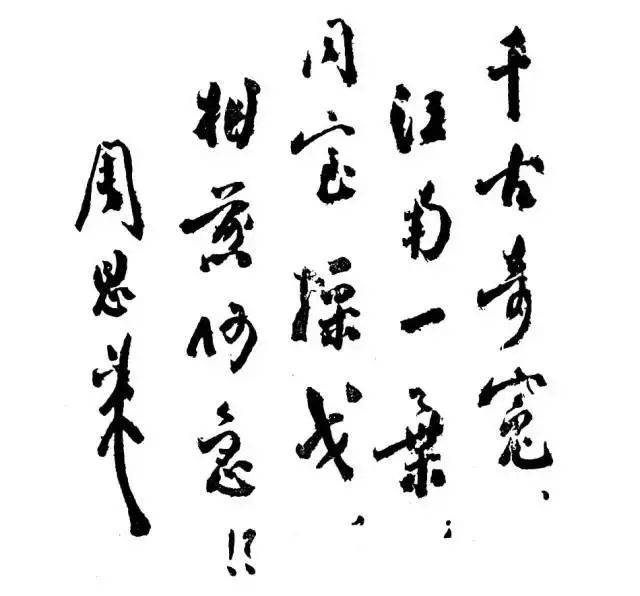 千古奇冤、
江南一葉；
同室操戈，
相煎何急！！
周恩來